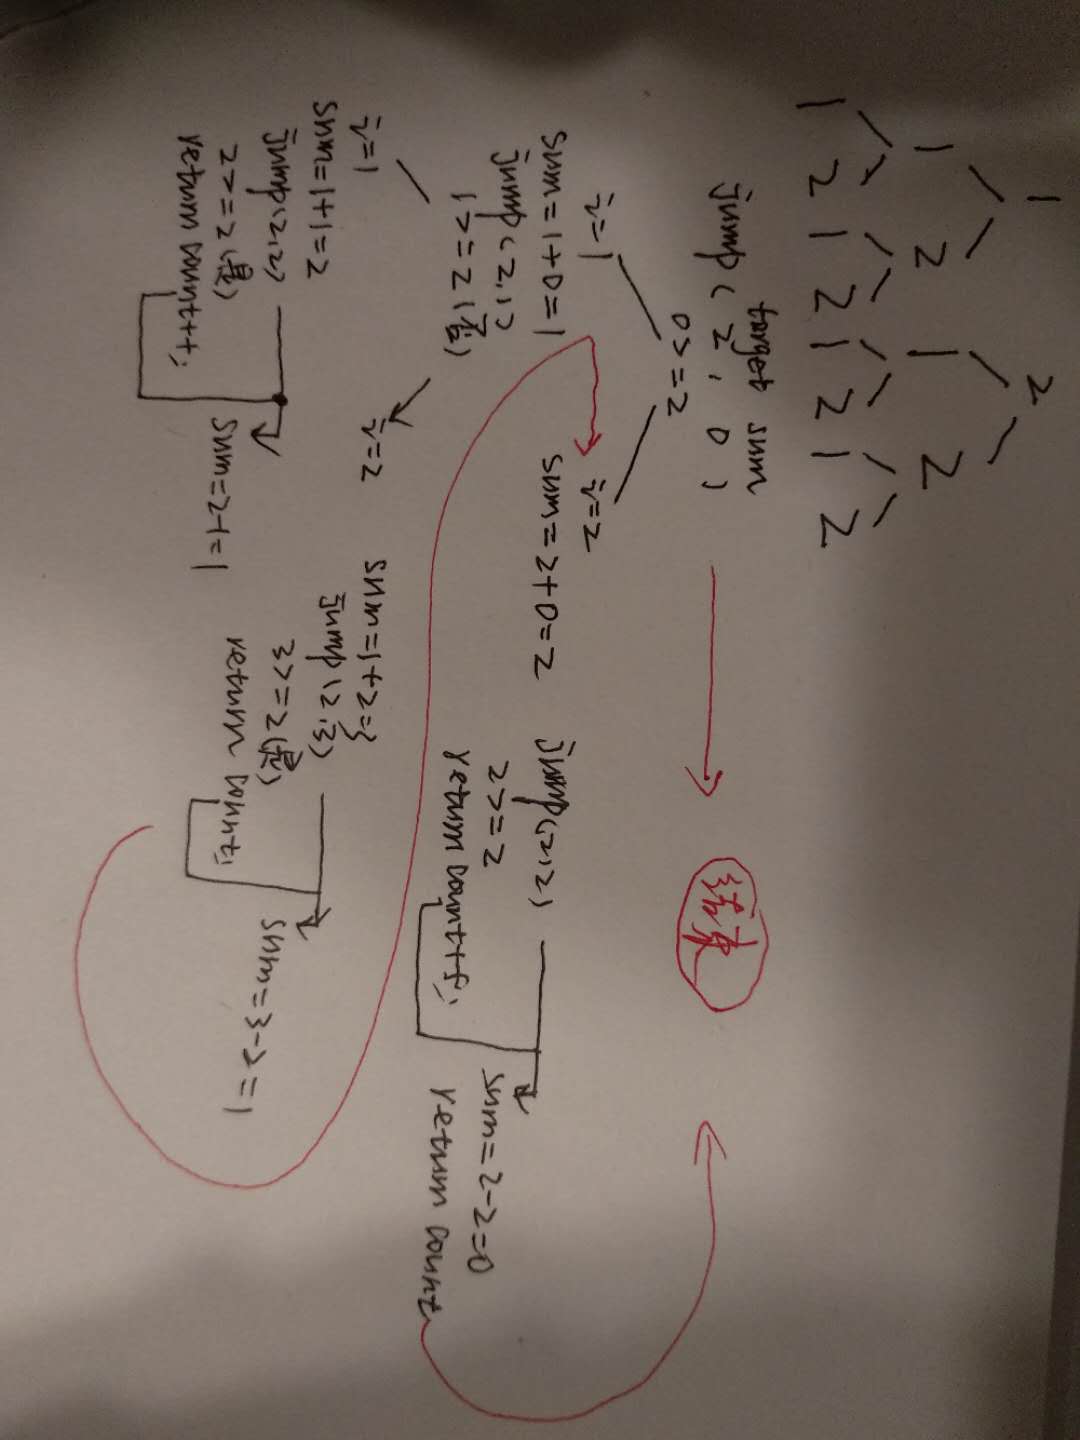 1 2
1 2 1 2
1 2 1 2 1 2 1 2
target sum
jump( 2 , 0 )
结束
0>=2
i=1
i=2
sum=1+0=1
sum=2+0=2
jump(2,1)
1>=2(否)
jump(2,2)
2>=2
return count++;
sum=2-2=0
return count
i=1
i=2
sum=1+1=2
jump(2,2)
2>=2(是)
return count++;
sum=2-1=1
sum=1+2=3
jump(2,3)
3>=2(是)
return count;
sum=3-2=1